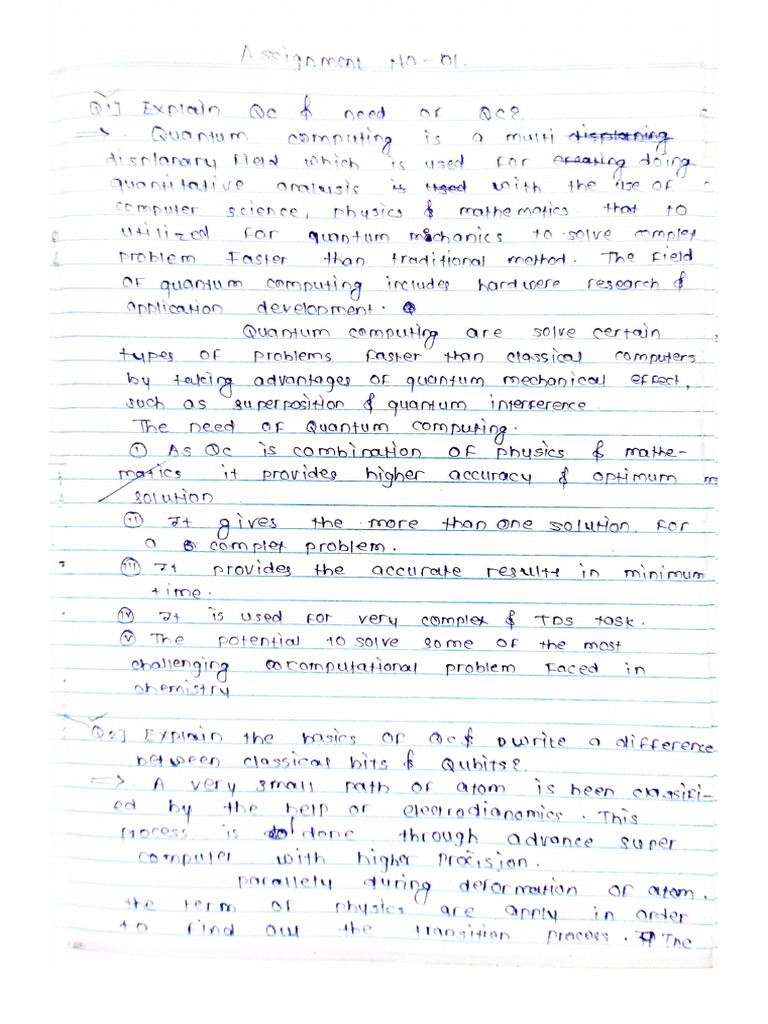 Assignment No-01.
Q1] Explain QC & need of QC?
⇒. Quantum computing is a multi displaning
displanary field which is used for creating doing
quantitative analusis is used with the use of
computer science, physics & mathematics that to
utilized for quantum mechanics to solve complet
problem faster than traditional method. The field
of quantum computing includes hardwere research &
application development.
Quantum computing are solve certain
types of problems faster than classical computers
by taking advantages of quantum mechanical effect,
such as superposition & quantum interference
The need of Quantum computing.
(i) As QC is combination of physics & mathe-
matics it provides higher accuracy & optimum
solution
(ii) It gives the more than one solution for
a complet problem.
(iii) It provides the accurate results in minimum
time.
(iv) It is used for very complex & TDS task.
(v) The potential to solve some of the most
challenging computational problem faced in
chemistry
Q2] Explain the basics of QC & write a difference
between classical bits & Qubits?
⇒ A very small path of atom is been classifi-
ed by the help of electrodianomics. This
process is done through advance super
computer with higher procision.
parallety during deformation of atom.
the term of physics are apply in order
to find out the transition process. The